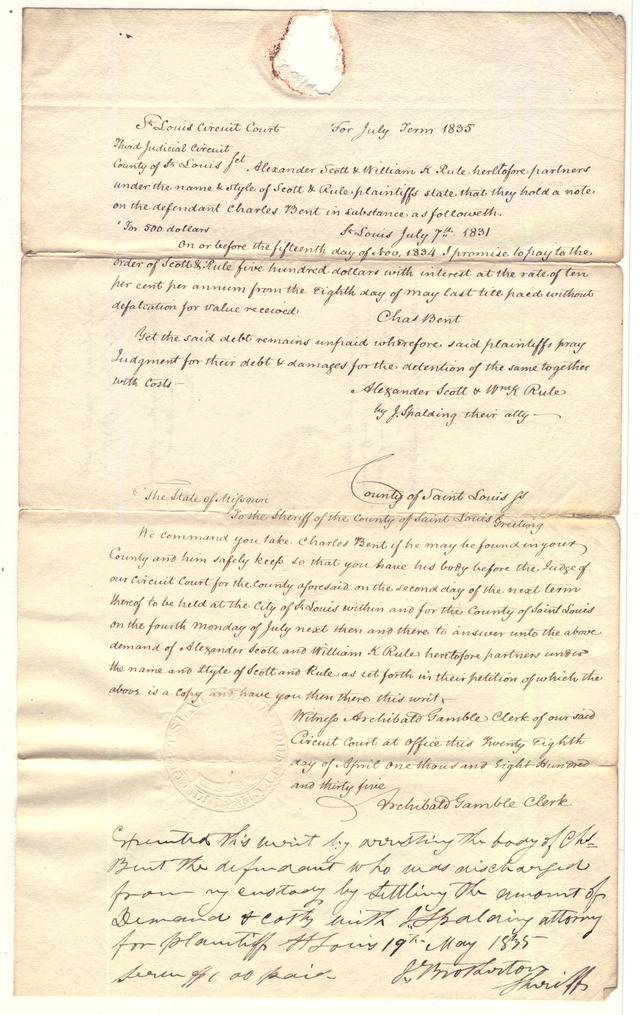 St Louis Circuit Court For July Term 1835
Third Judicial Circuit
County of St Louis Sct Alexander Scott & William K Rule heretofore partners
under the name & style of Scott & Rule plaintiffs state that they hold a note
on the defendant Charles Bent in substance as followeth.
"For 500 dollars St Louis July 7th 1831
On or before the fifteenth day of Nov, 1834 I promise to pay to the
order of Scott & Rule five hundred dollars with interest at the rate of ten
per cent per annum from the Eighth day of May last till paid without
defalcation for value received
Chas Bent
Yet the said debt remains unpaid wherefore said plaintiffs pray
Judgment for their debt & damages for the detention of the same together
with Costs —
Alexander Scott & Wm K Rule
by J. Spalding their atty —
County of Saint Louis Ss
The State of Missouri
To the Sheriff of the County of Saint Louis Greeting
We command you take Charles Bent if he may be found in your
County and him safely keep so that you have his body before the Judge of
our Circuit Court for the County aforesaid on the second day of the next term
thereof to be held at the City of St Louis within and for the County of Saint Louis
on the fourth Monday of July next then and there to answer unto the above
demand of Alexander Scott and William K Rule heretofore partners under
the name and Style of Scott and Rule as set forth in their petition of which the
above is a Copy and have you then there this writ.
Witness Archibald Gamble Clerk of our said
Circuit Court at office this Twenty Eighth
day of April One thous and Eight Hundred
and thirty five
Archibald Gamble Clerk
Executed this writ by arresting the body of Chs
Bent the defendant who was discharged
from my custody by settling the amount of
Demand & costs with J Spalding attorny
for plaintiff St Louis 19th May 1835
paid Js Brotherton
Sheriff